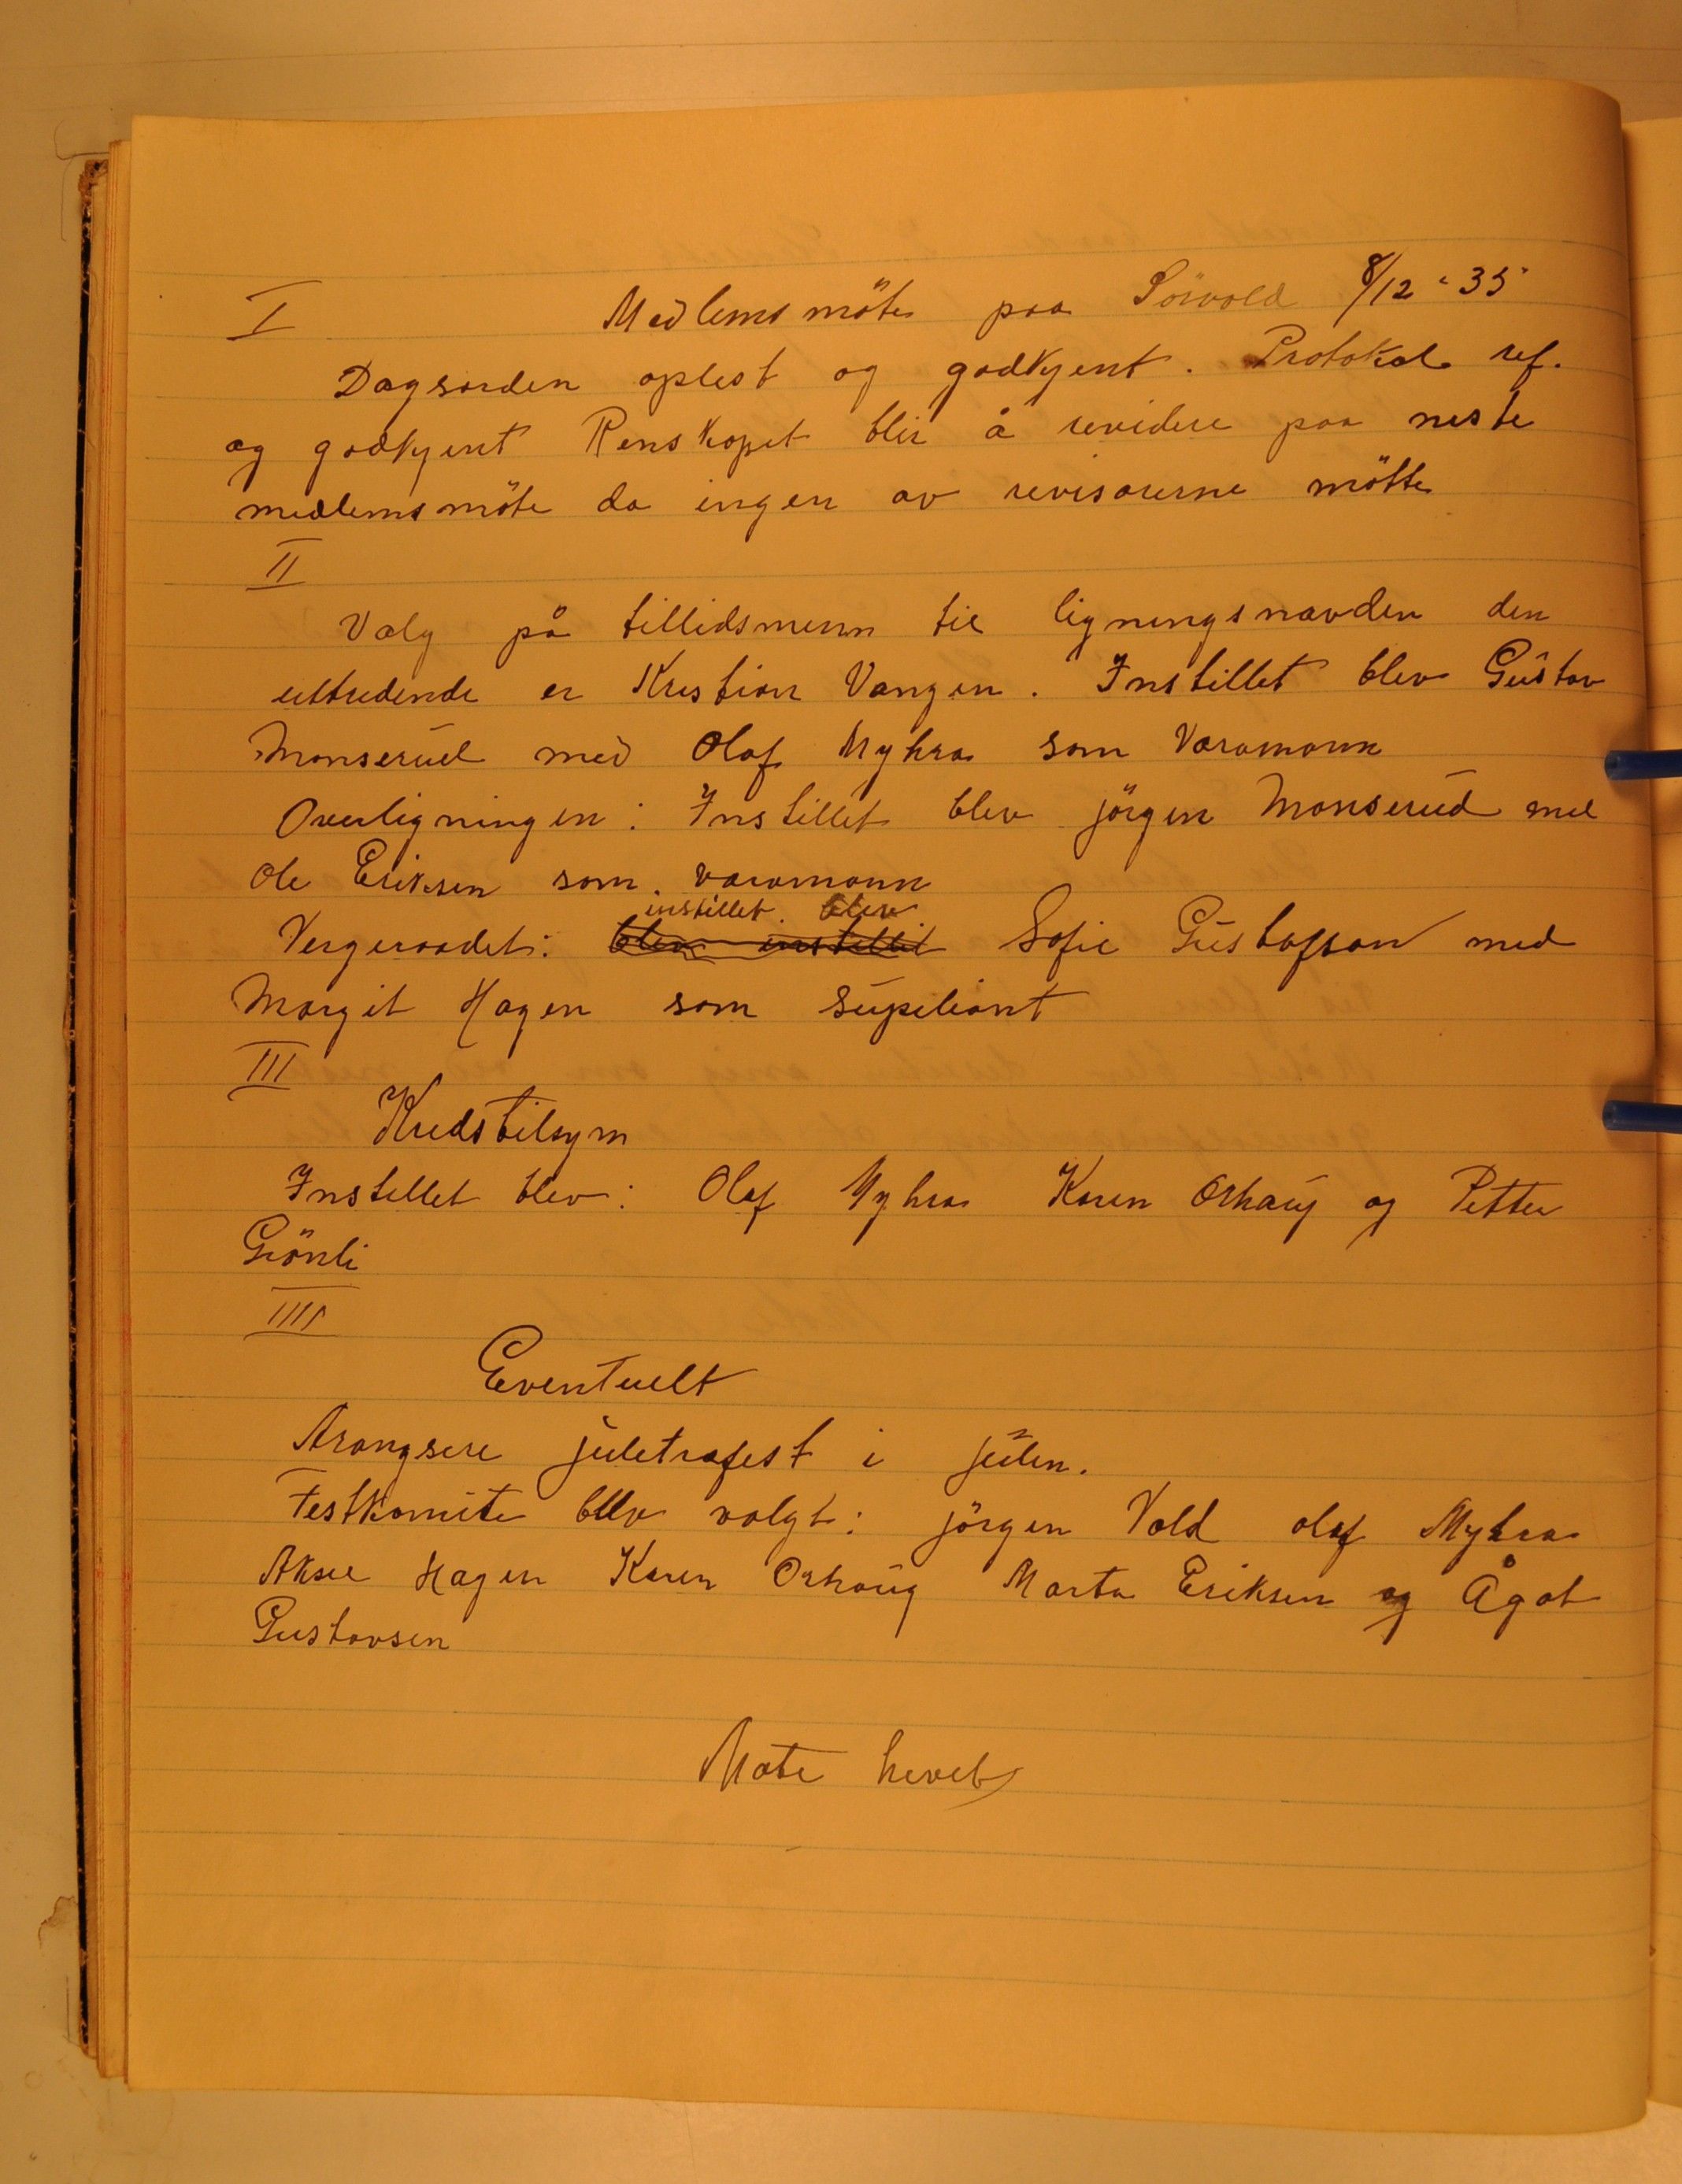 I Medlemsmöte paa Sörvold 8/12 - 35
Dagsorden oplest og godkjent. Protokol ref.
og godkjent Renskapet blir å revidere paa neste
medlemsmöte da ingen av revisorerne mötte
II
Valg på tillidsmenn til ligningsnavden den
uttredende er Kristian Vangen. Instillet blev Gustav
Monserud med Olaf Myhra som Varamann
Overligningen: Instillet blev jörgen Monserud med
Ole Eriksen som varamann
instillet blev
Vergeraadet: blev instillet Sofie Gustafson med
Margit Hagen som Supeliant
III
Kredstilsym
Instillet blev: Olaf Myhra Karen Orhaug og Petter
Grönli
IIII
Eventuelt
Arangsere juletrafest i julen.
Festkomite blev valgt: jörgen Vold olaf Myhra
Aksel Hagen Karen Orhaug Marta Eriksen og Ågot
Gustavsen
Möte hevet